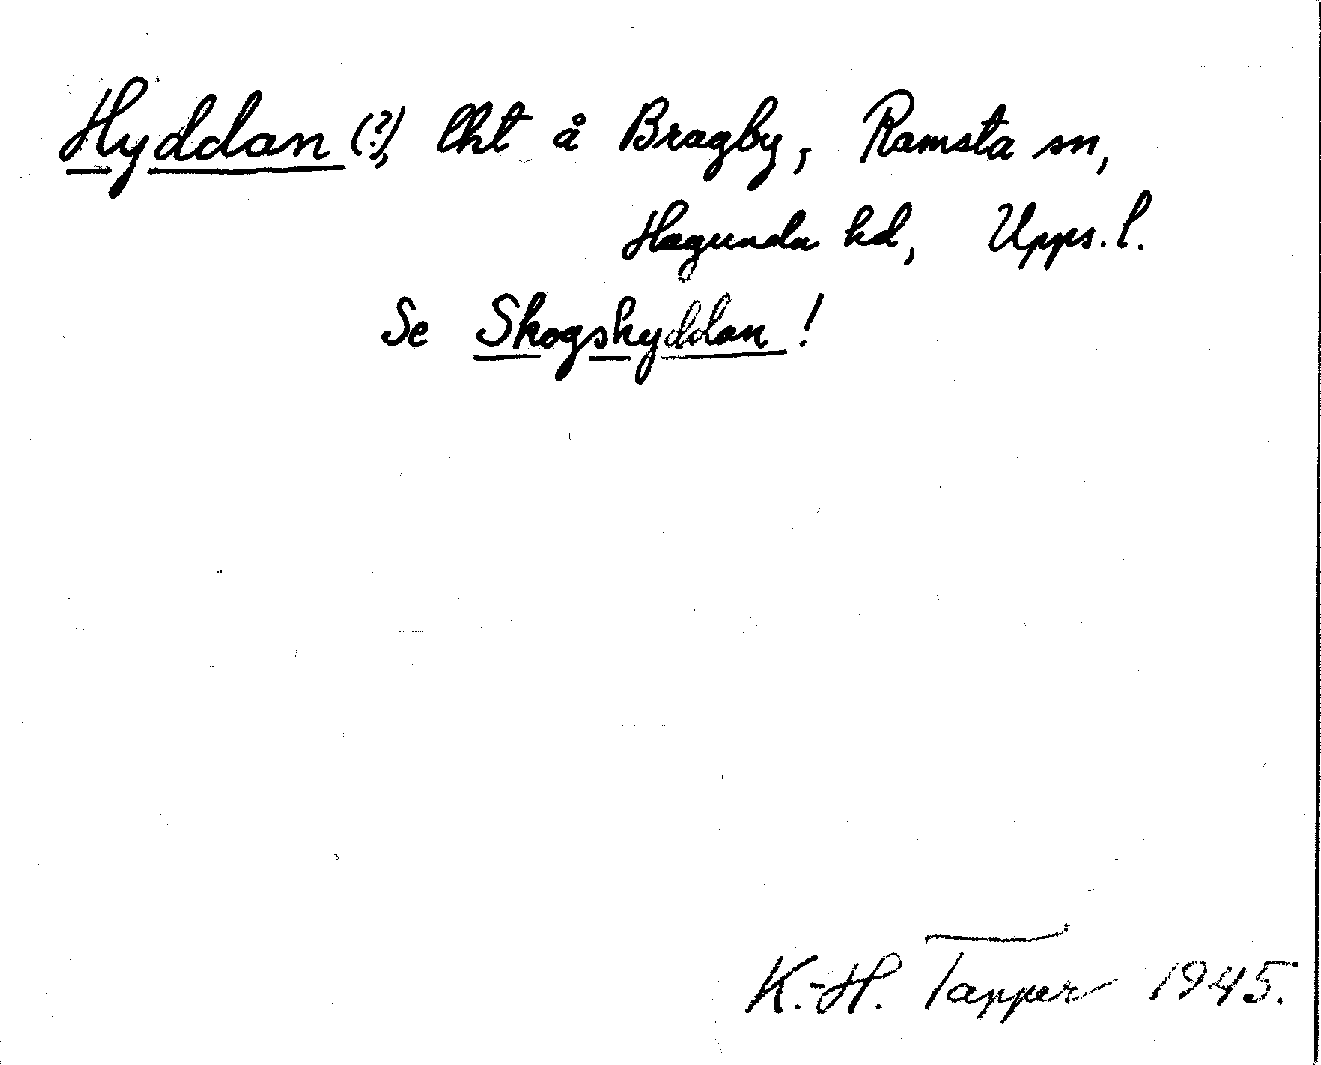 Hyddan (?), lht å Bragby, Ramsta sn,
Hagunda hd, Upps. l.
Se Skogshyddan!
K.-H. Tapper 1945.